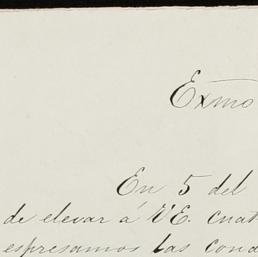 Exmo
En 5 del
de elevar á VE. cuat
espresamos las cond